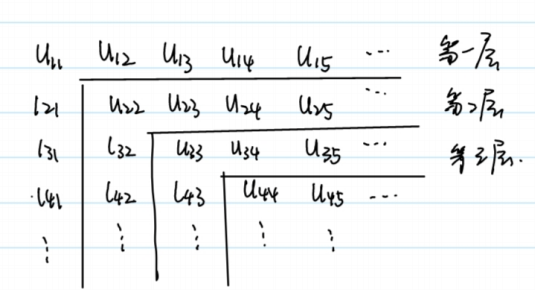 u₁₁ u₁₂ u₁₃ u₁₄ u₁₅ ⋯ 第一层
l₂₁ u₂₂ u₂₃ u₂₄ u₂₅ ⋯ 第2层
l₃₁ l₃₂ u₃₃ u₃₄ u₃₅ ⋯ 第三层.
l₄₁ l₄₂ l₄₃ u₄₄ u₄₅ ⋯
⋮ ⋮ ⋮ ⋮ ⋮